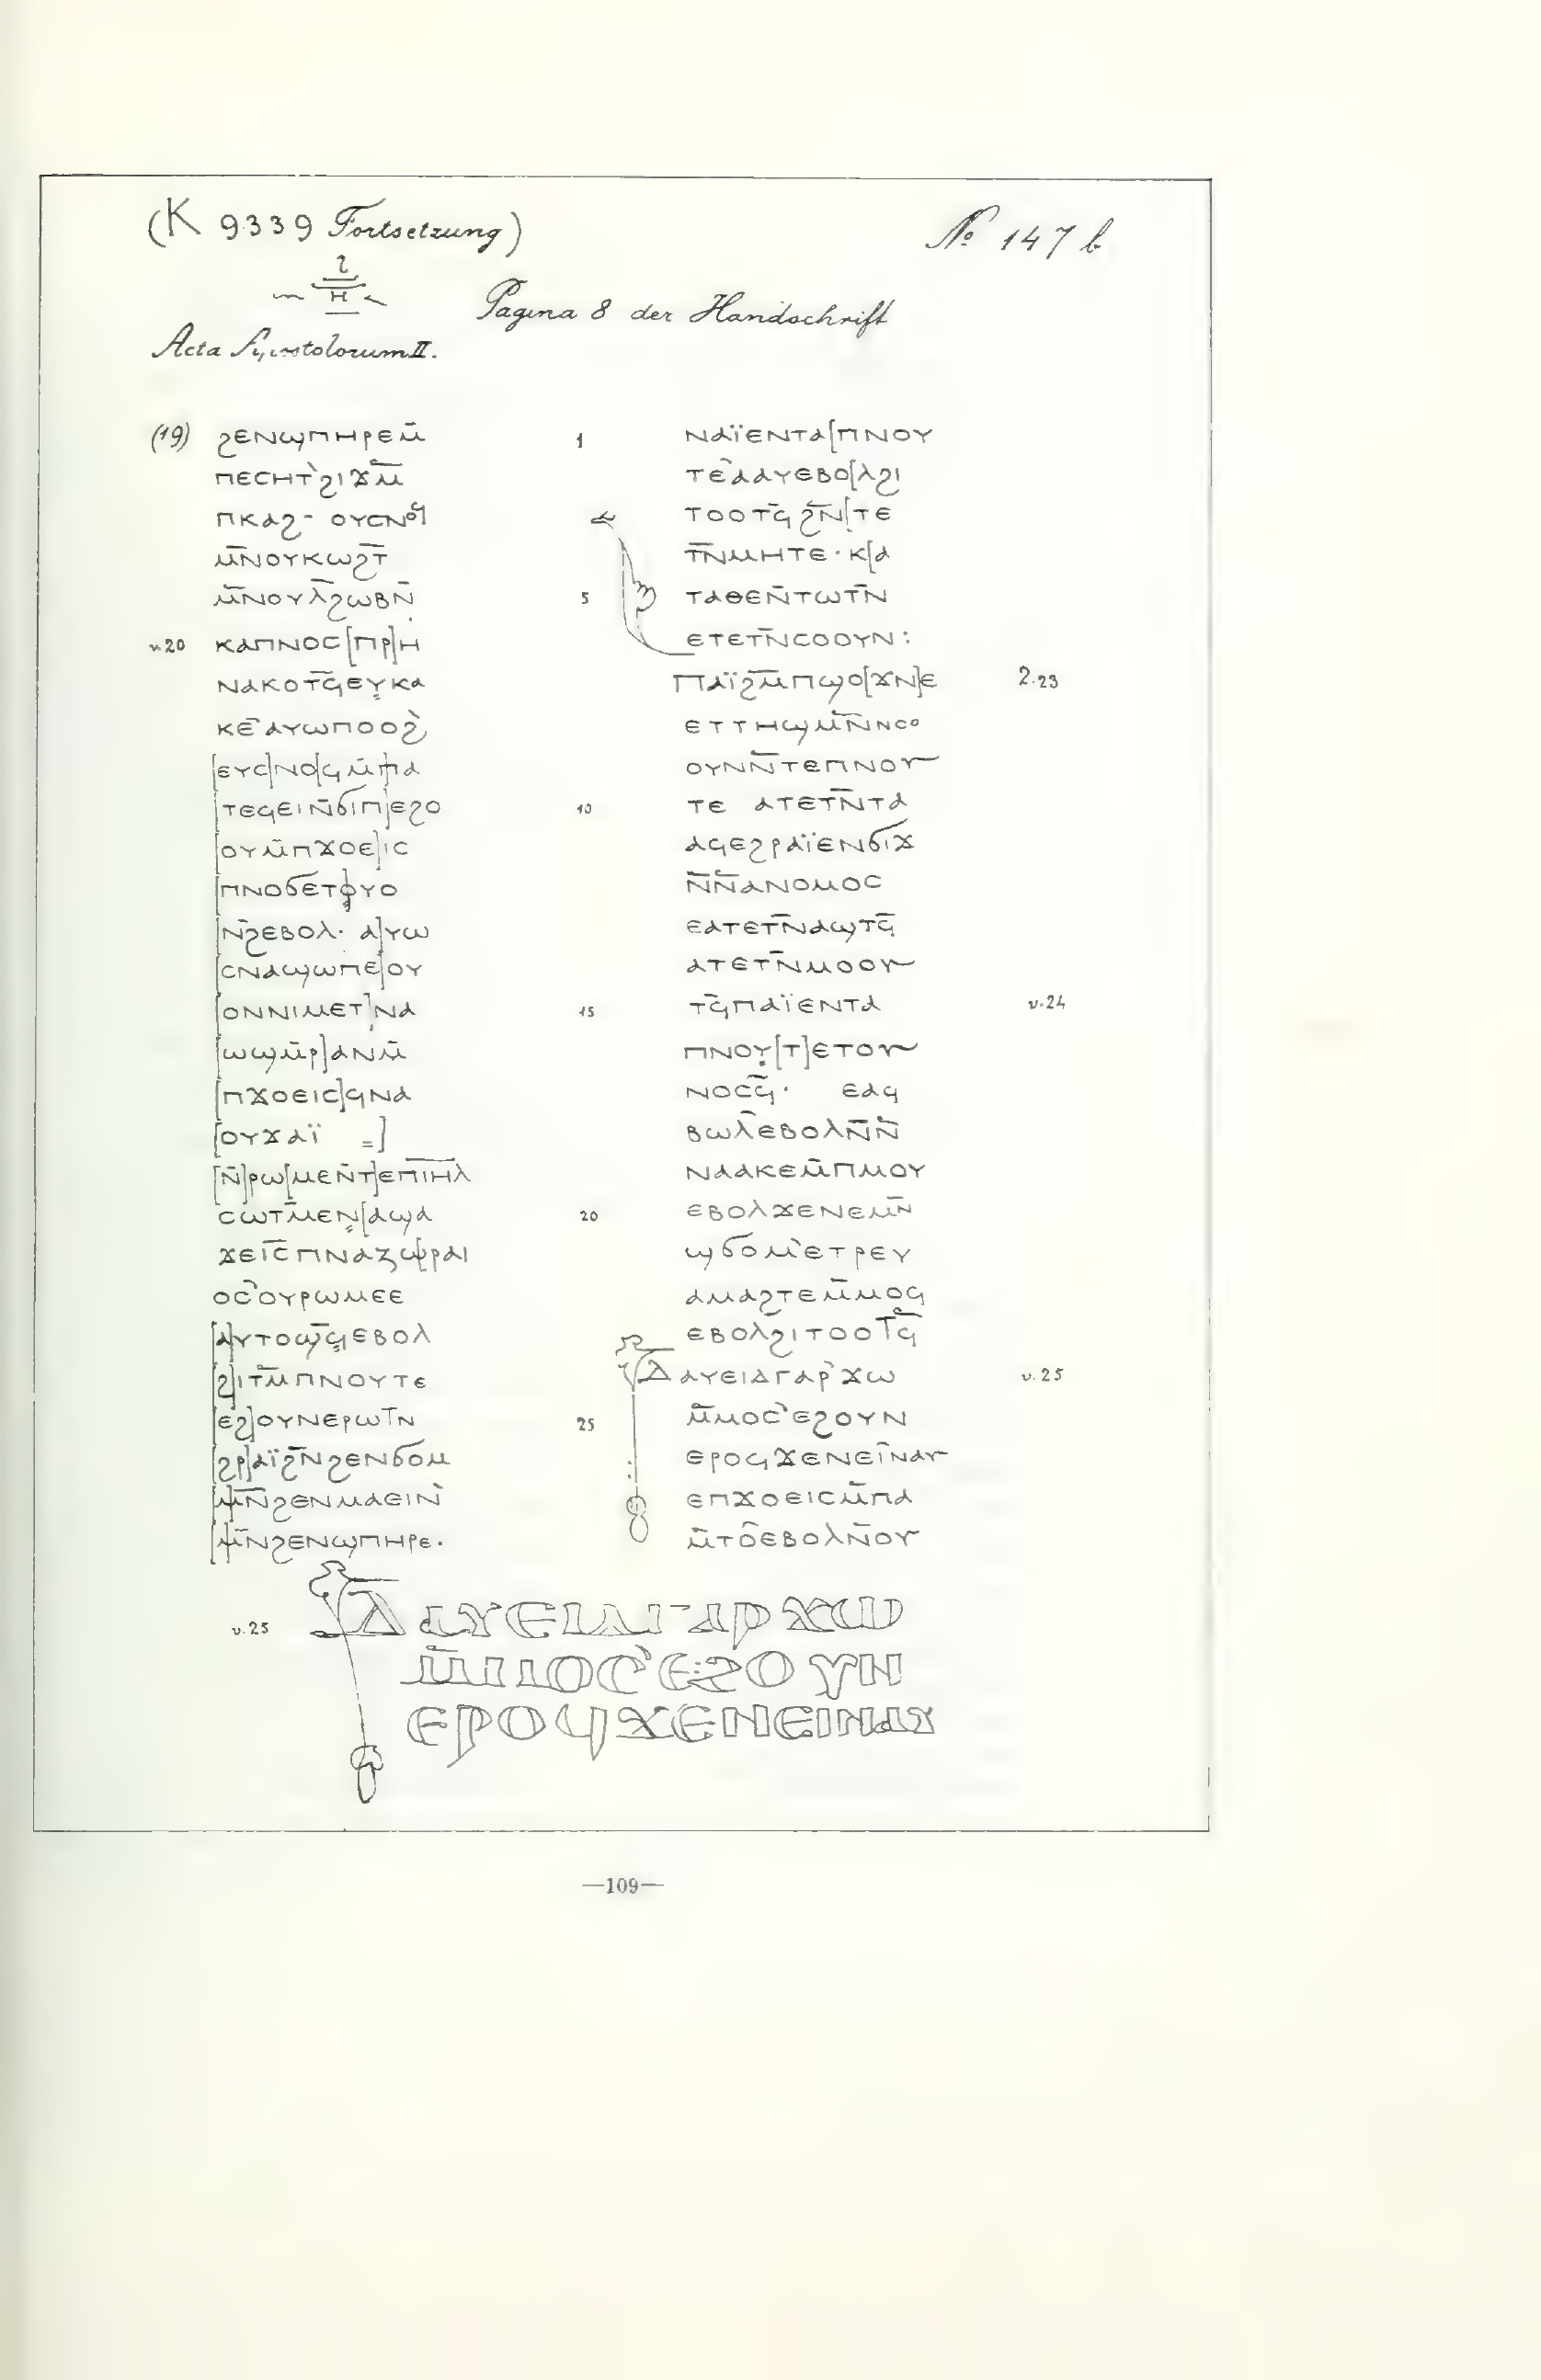 (K 9339 Fortsetzung)
№ 147 b
ⲏ
Pagina 8 der Handschrift
Acta Apostolorum II.
(19) ϩⲉⲛϣⲡⲏⲣⲉⲙ̄
ⲡⲉⲥⲏⲧ̀ϩⲓϫⲙ̄
ⲡⲕⲁϩ- ⲟⲩⲥⲛⲟϥ
ⲙ̄ⲛⲟⲩⲕⲱϩⲧ̄
ⲙ̄ⲛⲟⲩⲗ̄ϩⲱⲃⲛ̄
v.20 ⲕⲁⲡⲛⲟⲥ[ⲡⲣ]ⲏ
ⲛⲁⲕⲟⲧϥ̄ⲉⲩⲕⲁ
ⲕⲉ̄ⲁⲩⲱⲡⲟⲟϩ̀
[ⲉⲩⲥ]ⲛⲟ[ϥⲙ̄ⲡⲁ
[ⲧⲉϥⲉⲓⲛ̄ϭⲓⲡ]ⲉϩⲟ
[ⲟⲩⲙ̄ⲡϫⲟⲉ]ⲓⲥ
[ⲡⲛⲟϭⲉⲧⲟⲩⲟ
[ⲛ̄ϩⲉⲃⲟⲗ· ⲁ]ⲩⲱ
[ⲥⲛⲁϣⲱⲡⲉ]ⲟⲩ
[ⲟⲛⲛⲓⲙⲉⲧ]ⲛⲁ
[ⲱϣⲙ̄ⲣ]ⲁⲛⲙ̄
[ⲡϫⲟⲉⲓⲥ]ϥⲛⲁ
[ⲟⲩϫⲁⲓ̈ =]
[ⲛ̄]ⲣⲱ[ⲙⲉⲛ̄ⲧ]ⲉⲡⲓⲏ̄ⲗ̄
ⲥⲱⲧⲙ̄ⲉⲛ[ⲁϣⲁ
ϫⲉⲓ̄ⲥ̄ⲡⲛⲁⲍⲱⲣⲁⲓ
ⲟⲥ̀ⲟⲩⲣⲱⲙⲉⲉ
[ⲁ]ⲩⲧⲟϣϥ̄ⲉⲃⲟⲗ
[ϩ]ⲓⲧⲙ̄ⲡⲛⲟⲩⲧⲉ
[ⲉϩ]ⲟⲩⲛⲉⲣⲱⲧⲛ̄
[ϩⲣ]ⲁⲓ̈ϩⲛ̄ϩⲉⲛϭⲟⲙ
[ⲙ]ⲛ̄ϩⲉⲛⲙⲁⲉⲓⲛ̀
[ⲙ]ⲛ̄ϩⲉⲛϣⲡⲏⲣⲉ·
1 ⲛⲁⲓ̈ⲉⲛⲧⲁ[ⲡⲛⲟⲩ
ⲧⲉ̀ⲁⲁⲩⲉⲃⲟ[ⲗϩⲓ
ⲧⲟⲟⲧϥ̄ϩⲛ̄[ⲧⲉ
ⲧⲛ̄ⲙⲏⲧⲉ·ⲕ[ⲁ
5 ⲧⲁⲑⲉⲛ̄ⲧⲱⲧⲛ̄
ⲉⲧⲉⲧⲛ̄ⲥⲟⲟⲩⲛ:
ⲡⲁⲓ̈ϩⲙ̄ⲡϣⲟ[ϫⲛ]ⲉ 2.23
ⲉⲧⲧⲏϣⲙⲛ̄ⲛⲥⲟ
ⲟⲩⲛⲛ̄ⲧⲉⲡⲛⲟⲩ
10 ⲧⲉ ⲁⲧⲉⲧⲛ̄ⲧⲁ
ⲁϥⲉϩⲣⲁⲓ̈ⲉⲛϭⲓϫ
ⲛ̄ⲛ̄ⲁⲛⲟⲙⲟⲥ
ⲉⲁⲧⲉⲧⲛ̄ⲁϣⲧϥ̄
ⲁⲧⲉⲧⲛ̄ⲙⲟⲟⲩ
15 ⲧϥ̄ⲡⲁⲓ̈ⲉⲛⲧⲁ v.24
ⲡⲛⲟⲩ[ⲧ]ⲉⲧⲟⲩ
ⲛⲟⲥϥ̄· ⲉⲁϥ
ⲃⲱⲗ̄ⲉⲃⲟⲗⲛ̄ⲛ̄
ⲛⲁⲁⲕⲉⲙ̄ⲡⲙⲟⲩ
20 ⲉⲃⲟⲗϫⲉⲛⲉⲙⲛ̄
ϣϭⲟⲙ̀ⲉⲧⲣⲉⲩ
ⲁⲙⲁϩⲧⲉⲙ̄ⲙⲟϥ
ⲉⲃⲟⲗϩⲓⲧⲟⲟⲧϥ̄
ⲇⲁⲩⲉⲓⲇⲅⲁⲣ̀ϫⲱ v.25
25 ⲙ̄ⲙⲟⲥ̀ⲉϩⲟⲩⲛ
ⲉⲣⲟϥϫⲉⲛⲉⲓ̂ⲛⲁⲩ
ⲉⲡϫⲟⲉⲓⲥⲙ̄ⲡⲁ
ⲙ̄ⲧⲟ̂ⲉⲃⲟⲗⲛ̄ⲟⲩ
v.25 ⲇⲁⲩⲉⲓⲇⲅⲁⲣϫⲱ
ⲙ̄ⲙⲟⲥ̀ⲉϩⲟⲩⲛ
ⲉⲣⲟϥϫⲉⲛⲉⲓⲛⲁⲩ
—109—